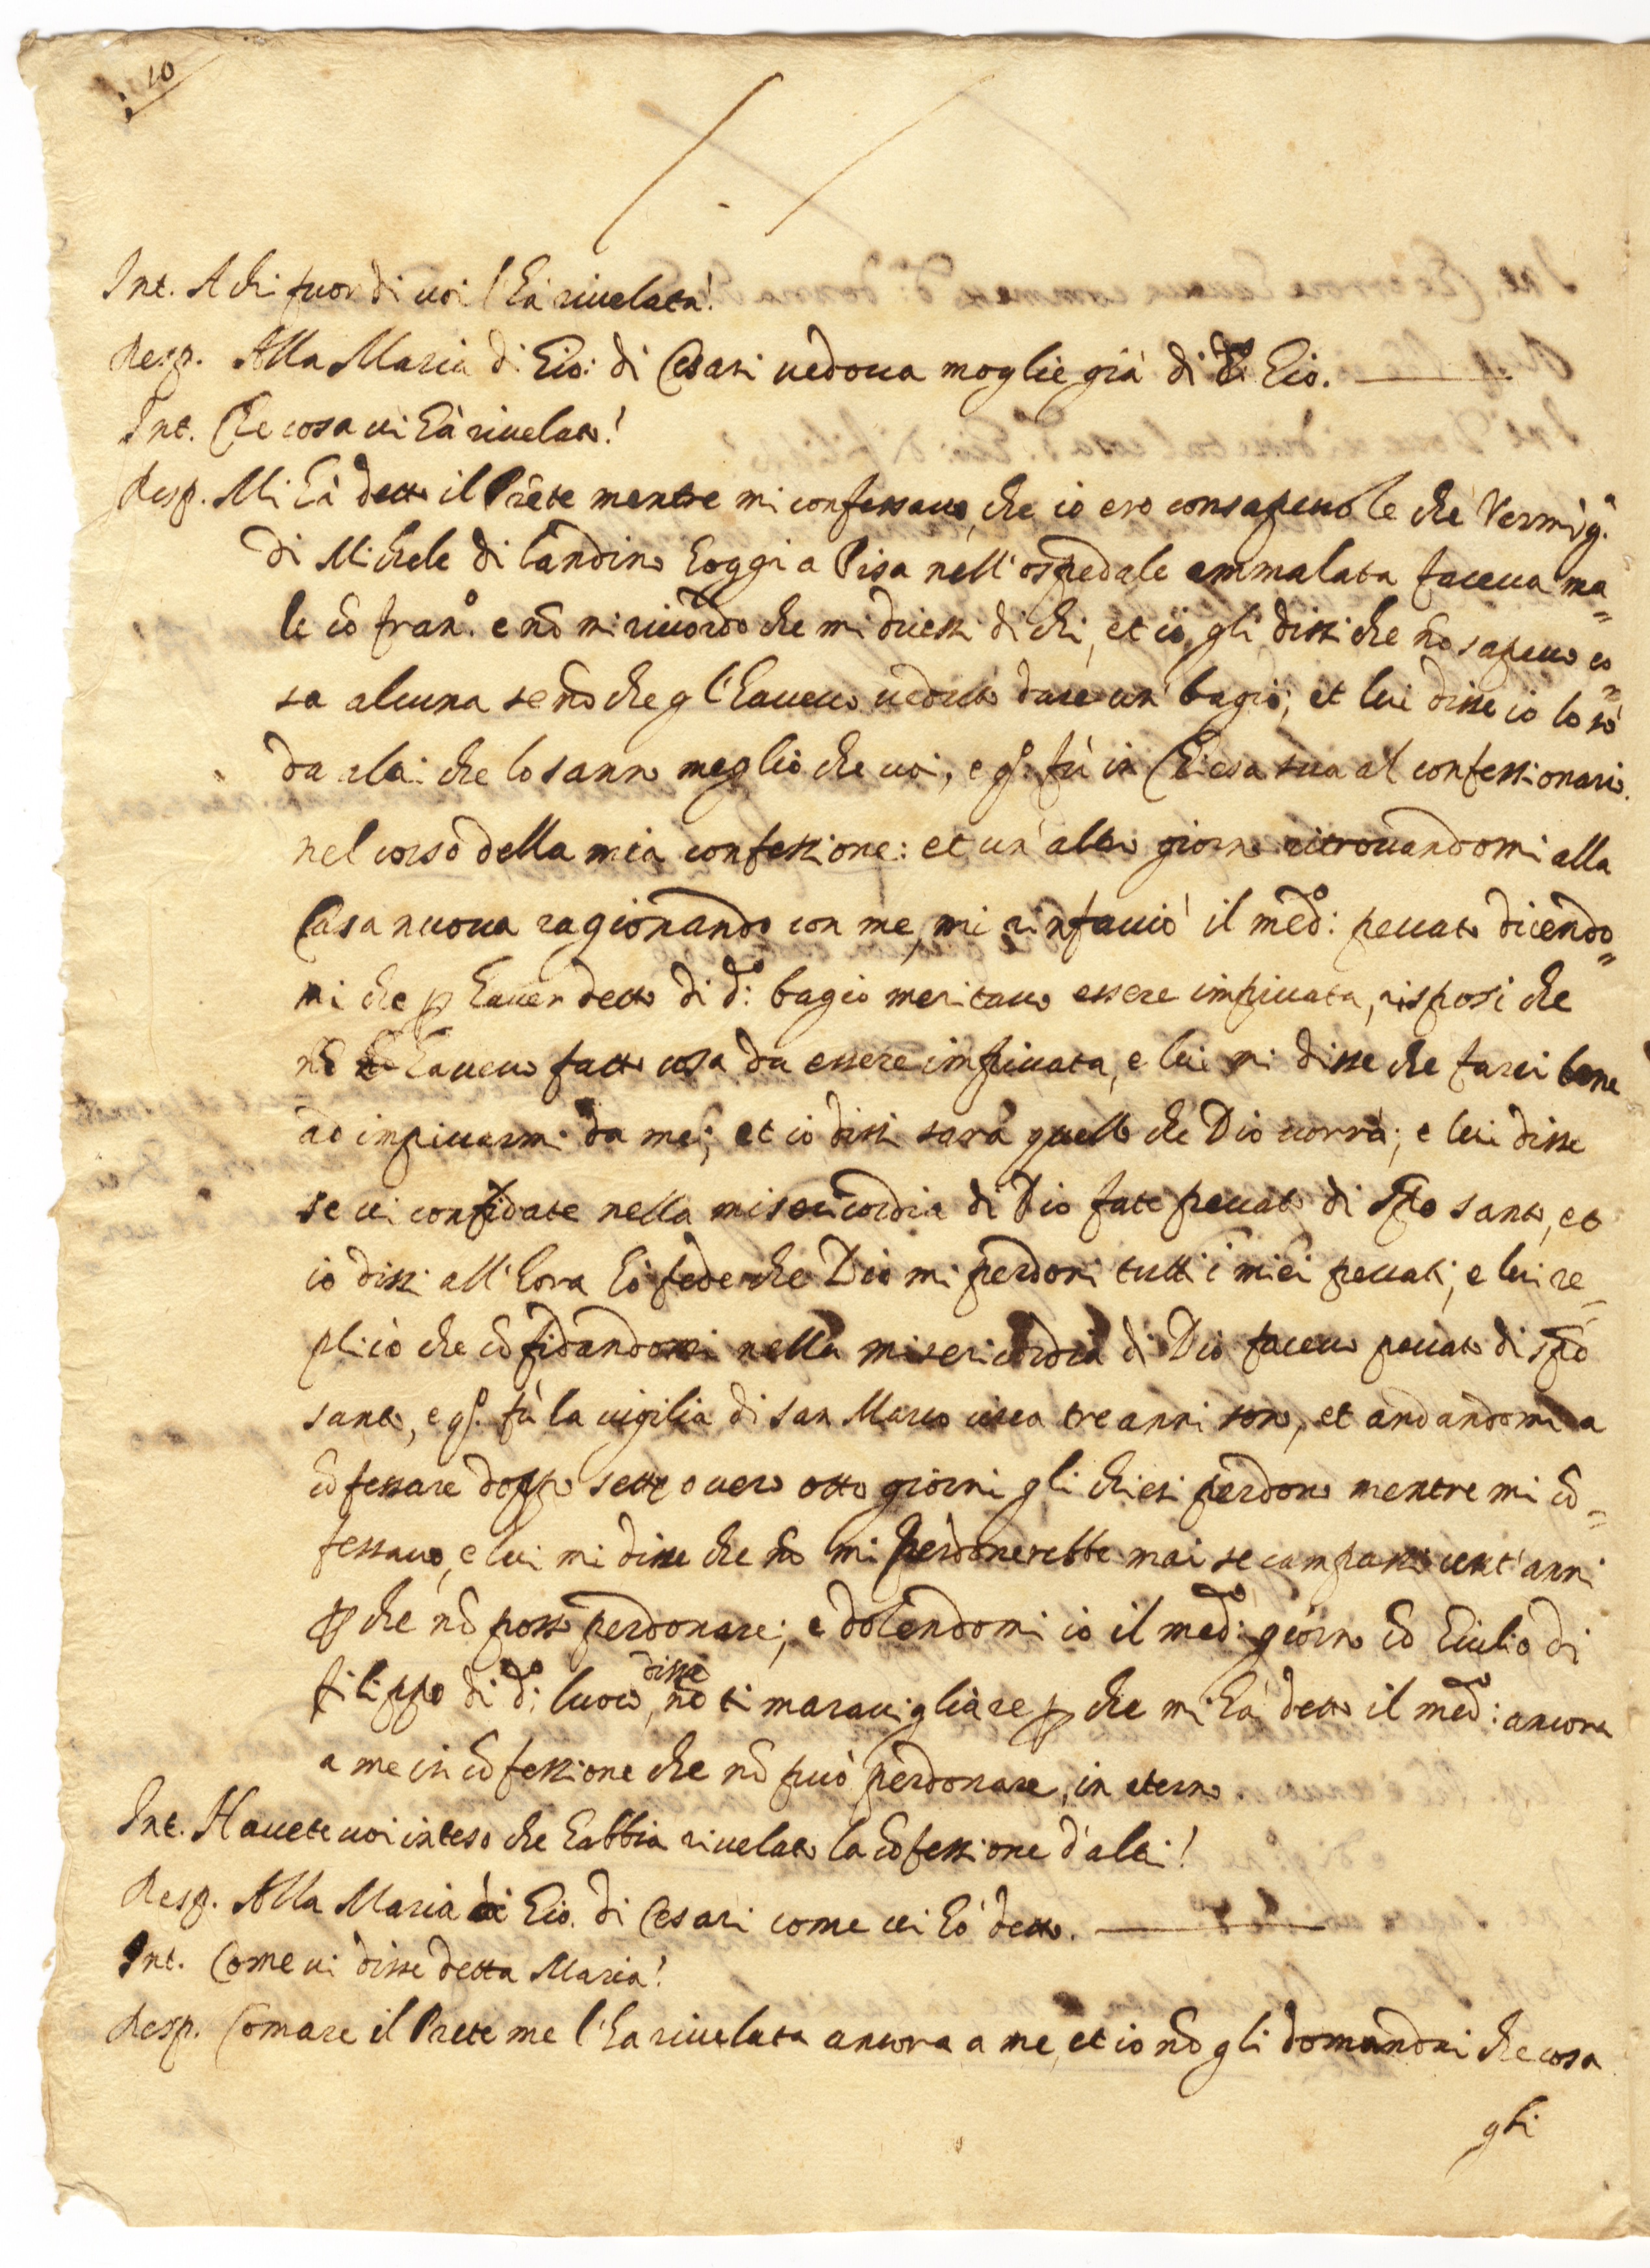 10
Int. A chi fuor di voi l'hà rivelata?
Resp. Alla Maria di Gio: di Cesari vedova moglie già di d.º Gio.
Int. Che cosa vi hà rivelato?
Resp. Mi hà detto il Prete mentre mi confessavo, che io ero consapevole che Vermig.ª
di Michele di Landino hoggi a Pisa nell'ospedale ammalata faceva ma=
le cõ fran.º e nõ mi ricordo che mi dicessi di chi, et io gli dissi che nõ sapevo co=
sa alcuna se nõ che gl'havevo veduto dare un bagio; et lui disse io lo sò
da altri che lo sanno meglio che voi, e q.º fù in Chiesa sua al confessionario
nel corso della mia confessione: et un'altro giorno ritrovandomi alla
Casa nuova ragionando con me, mi rinfacciò il med.º: peccato dicendo=
mi che p haver detto di d.º: bagio meritavo essere impiccata, risposi che
nõ havevo fatto cosa da essere impiccata, e lui mi disse che farei bene
ad impiccarmi da me; et io dissi sarà quello che Dio vorrà; e lui disse
se vi confidate nella misericordia di Dio fate peccato di Spõ santo, et
io dissi all'hora hò fede che Dio mi perdoni tutti i miei peccati, e lui re=
plicò che cõfidandomi nella misericordia di Dio facevo peccato di spõ
santo, e q.º fù la vigilia di san Marco circa tre anni sono, et andandomi a
cõfessare doppo sette overo otto giorni gli chiesi perdono mentre mi cõ=
fessavo, e lui mi disse che nõ mi perdonerebbe mai se campassi cent'anni
pche nõ posso perdonare; e dolendomi io il med.º: giorno cõ Giulio di
filippo di d.º: luoco, disse nõ ti maravigliare pche mi hà detto il med.º: ancora
a me in cõfessione che nõ può perdonare in eterno
Int. Havete voi inteso che habbia rivelato la cõfessione d'altri?
Resp. Alla Maria di Gio. di Cesari come vi hò detto.
Int. Come vi disse detta Maria?
Resp. Comare il Prete me l'ha rivelata ancora a me, et io nõ gli domandai che cosa
gli